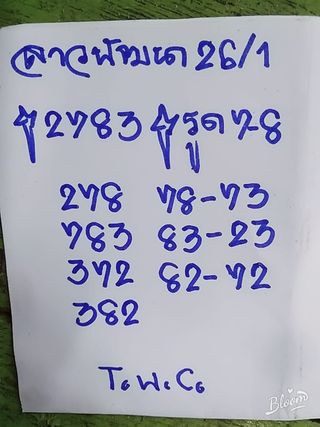 ลาวพัฒนา 26/1
2783 รูด 7-8
278 78-73
783 83-23
372 82-72
382
T. W. C.
Bloom